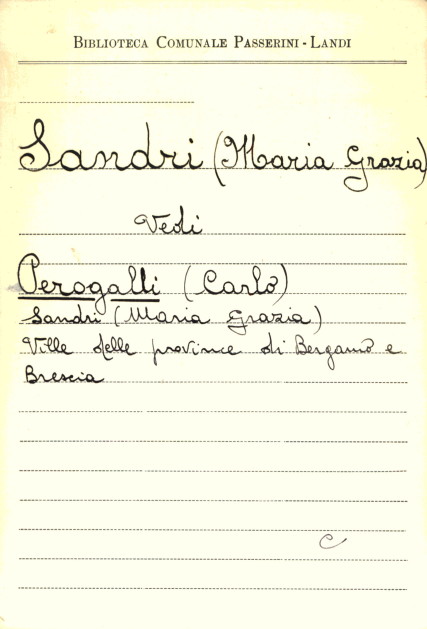 BIBLIOTECA COMUNALE PASSERINI - LANDI
Sandri (Maria Grazia)
Vedi
Perogalli (Carlo)
Sandri (Maria Grazia)
Ville delle province di Bergamo e
Brescia
C